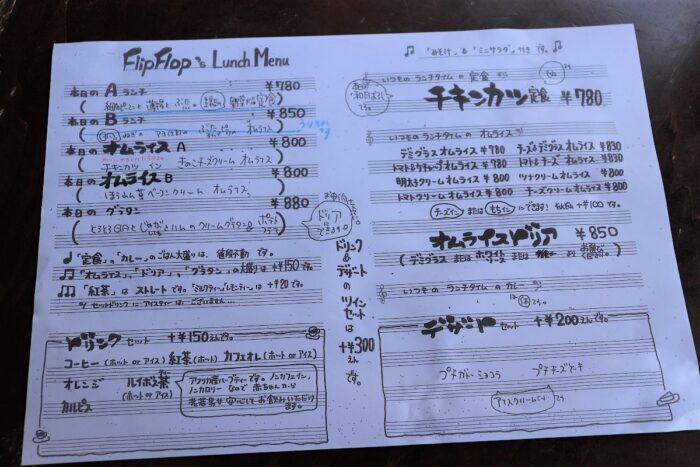 FlipFlop's Lunch Menu
本日の Aランチ ¥780
本日の Bランチ ¥850
本日の オムライス A ¥800
チキンカツ イン きのこチーズクリーム オムライス
本日の オムライス B ¥800
(ほうれん草ベーコンクリーム オムライス)
本日の グラタン ¥880
ドリアにできます。
「定食」、「カレー」のごはん大盛りは、値段不動 です。
「オムライス」、「ドリア」、「グラタン」の大盛りは +¥150 です。
「紅茶」は ストレート です。「ミルクティー」「レモンティー」は +¥20 です。
セットドリンクに アイスティーは ございません...
ドリンク セット +¥150えんです。
コーヒー (ホット or アイス) 紅茶 (ホット) カフェオレ (ホット or アイス)
オレンジ ルイボス茶 (ホット or アイス)
カルピス
アフリカ産ハーブティーです。ノンカフェイン、
ノンカロリー なので 赤ちゃんから
安心して お飲みいただけ
ます。
ドリンク & デザートの ツインセットは +¥300えん です。
「みそ汁」&「ミニサラダ」付き です。
いつもの ランチタイム の 定食
チキンカツ定食 ¥780
いつもの ランチタイムの オムライス
デミグラスオムライス ¥780 チーズデミグラスオムライス ¥830
トマトケチャップオムライス ¥780 トマトチーズ オムライス ¥830
明太子クリームオムライス ¥800 ツナクリームオムライス ¥800
トマトクリームオムライス ¥800 チーズクリームオムライス ¥800
チーズイン または もちイン に できます! +¥100 です。
オムライスドリア ¥850
(デミグラス または ホワイトソース または
いつもの ランチタイム の カレー
デザート セット +¥200えん です。
プチガトーショコラ プチチーズケーキ
アイスクリーム